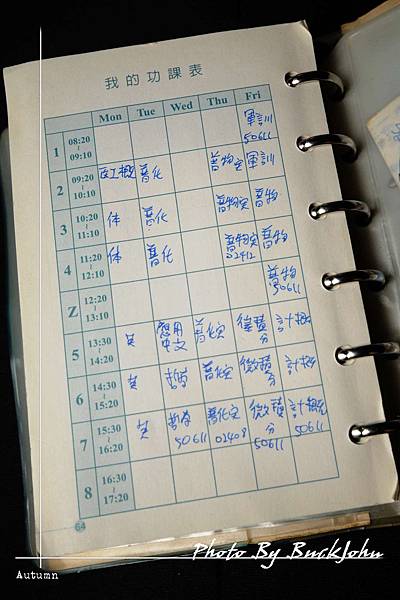 我的功課表
Mon Tue Wed Thu Fri
1 08:20 ~ 09:10 軍訓 50611
2 09:20 ~ 10:10 普化 普物實 軍訓
3 10:20 ~ 11:10 体 普化 普物實 普物
4 11:20 ~ 12:10 体 普化 普物實 02412 普物
Z 12:20 ~ 13:10 普物 50611
5 13:30 ~ 14:20 英 應用中文 普化實 微積分 計概
6 14:30 ~ 15:20 英 哲學 普化實 微積分 計概
7 15:30 ~ 16:20 英 哲學 50611 普化實 02408 微積分 50611 計概 50611
8 16:30 ~ 17:20
64
Photo By BuckJohn
Autumn